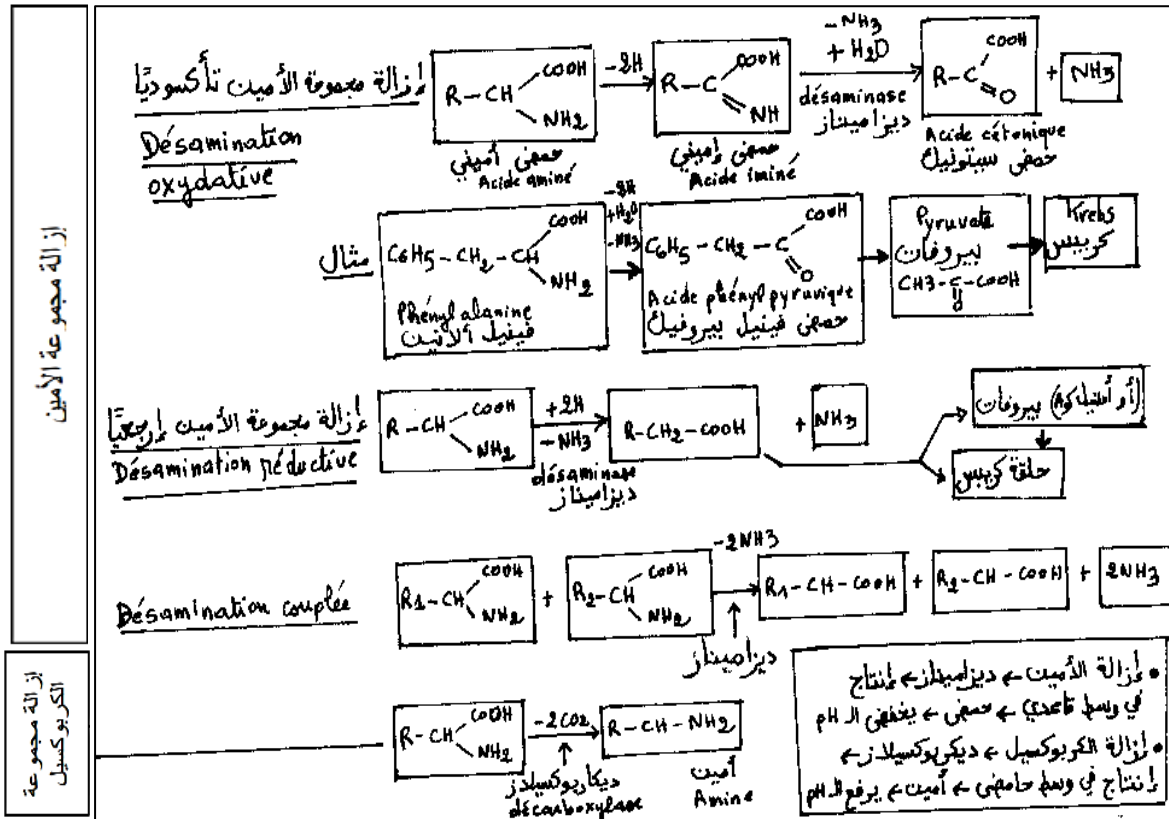 إزالة مجموعة الأمين
إزالة مجموعة الأمين تأكسوديًّا
Désamination
oxydative
R-CH COOH NH2
حمض أميني
Acide aminé
-2H
R-C COOH NH
حمض إميني
Acide iminé
-NH3
+ H2O
désaminase
ديزاميناز
R-C COOH O
Acide cétonique
حمض سيتونيك
+ NH3
مثال
C6H5-CH2-CH COOH NH2
Phénylalanine
فينيل ألانين
-2H
+H2O
-NH3
C6H5-CH2-C COOH O
Acide phénylpyruvique
حمض فينيل بيروفيك
Pyruvate
بيروفات
CH3-C-COOH
O
Krebs
كريبس
إزالة مجموعة الأمين إرجعيًّا
Désamination réductive
R-CH COOH NH2
+2H
-NH3
désaminase
ديزاميناز
R-CH2-COOH
+ NH3
بيروفات (أو أستيل كوA)
حلقة كريبس
Désamination couplée
R1-CH COOH NH2
+
R2-CH COOH NH2
-2NH3
ديزاميناز
R1-CH-COOH + R2-CH-COOH + 2NH3
إزالة مجموعة
الكربوكسيل
R-CH COOH NH2
-2CO2
ديكاربوكسيلاز
décarboxylase
R-CH-NH2
أمين
Amine
• إزالة الأمين ← ديزاميناز ← إنتاج
في وسط قاعدي ← حمض ← يخفض الـ pH
• إزالة الكربوكسيل ← ديكربوكسيلاز ←
إنتاج في وسط حامضي ← أمين ← يرفع الـ pH